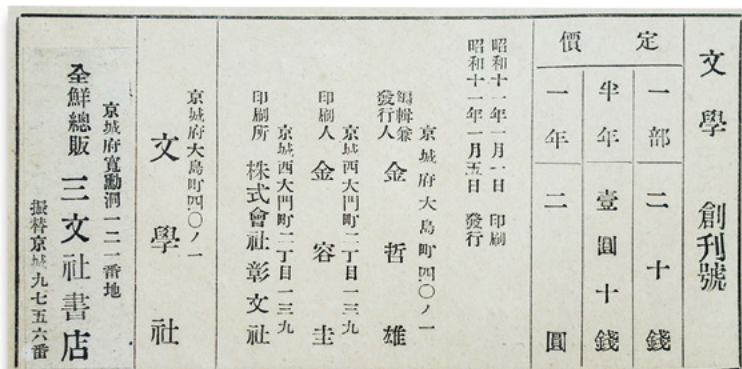 文學 創刊號
定價
一部 二十錢
半年 壹圓十錢
一年 二圓
昭和十一年一月一日 印刷
昭和十一年一月五日 發行
京城府大島町四〇ノ一
編輯兼發行人 金哲雄
京城西大門町二丁目一三九
印刷人 金容圭
京城西大門町二丁目一三九
印刷所 株式會社彰文社
京城府大島町四〇ノ一
文學社
京城府寬勳洞一二一番地
全鮮總販 三文社書店
振替京城九七五六番